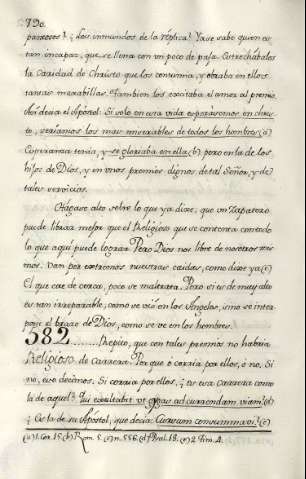 790.
pareceres? ¿dois inmundos de la réplica? Ya se sabe quien es
tan incapaz, que se llena con un poco de paja. Estrechábalos
la caridad de Christo que los consumia, y obraba en ellos
tantas maravillas. Tambien los excitaba el amor al premio.
Así decia el Apóstol: Si solo en esta vida esperásemos en Chris-
to, seriamos los mas miserables de todos los hombres (a)
Esperanza tenia, y se gloriaba en ella (b) pero en la de los
hijos de Dios, y en unos premios dignos de tal Señor, y de
tales servicios.
Hágase alto sobre lo que ya dixe, que un Zapatero
puede librar mejor que el Religioso que se contenta con todo
lo que aquí puede lograr. Pero Dios nos libre de nosotros mis-
mos. Van por extremos nuestras caidas, como dixe ya (c)
El que cae de cerca, poco se maltrata. Pero si es de muy alto
es tan irreparable, como se vió en los Angeles, sino se inter-
pone el brazo de Dios, como se ve en los hombres.
582 ...... Repito, que con tales premios no habria
Religioso de carrera. Por que ó corria por ellos, ó no. Si
no, eso decimos. Si corria por ellos, ¿es esa carrera como
la de aquel? Qui exultabit ut Gigas ad currendam viam? (d)
¿Es la de su Apóstol, que decia: Cursum consummavi? (e)
(a) 1. Cor. 15. (b) Rom. 5. (c) n. 556. (d) Psal. 18. (e) 2. Tim. 4.